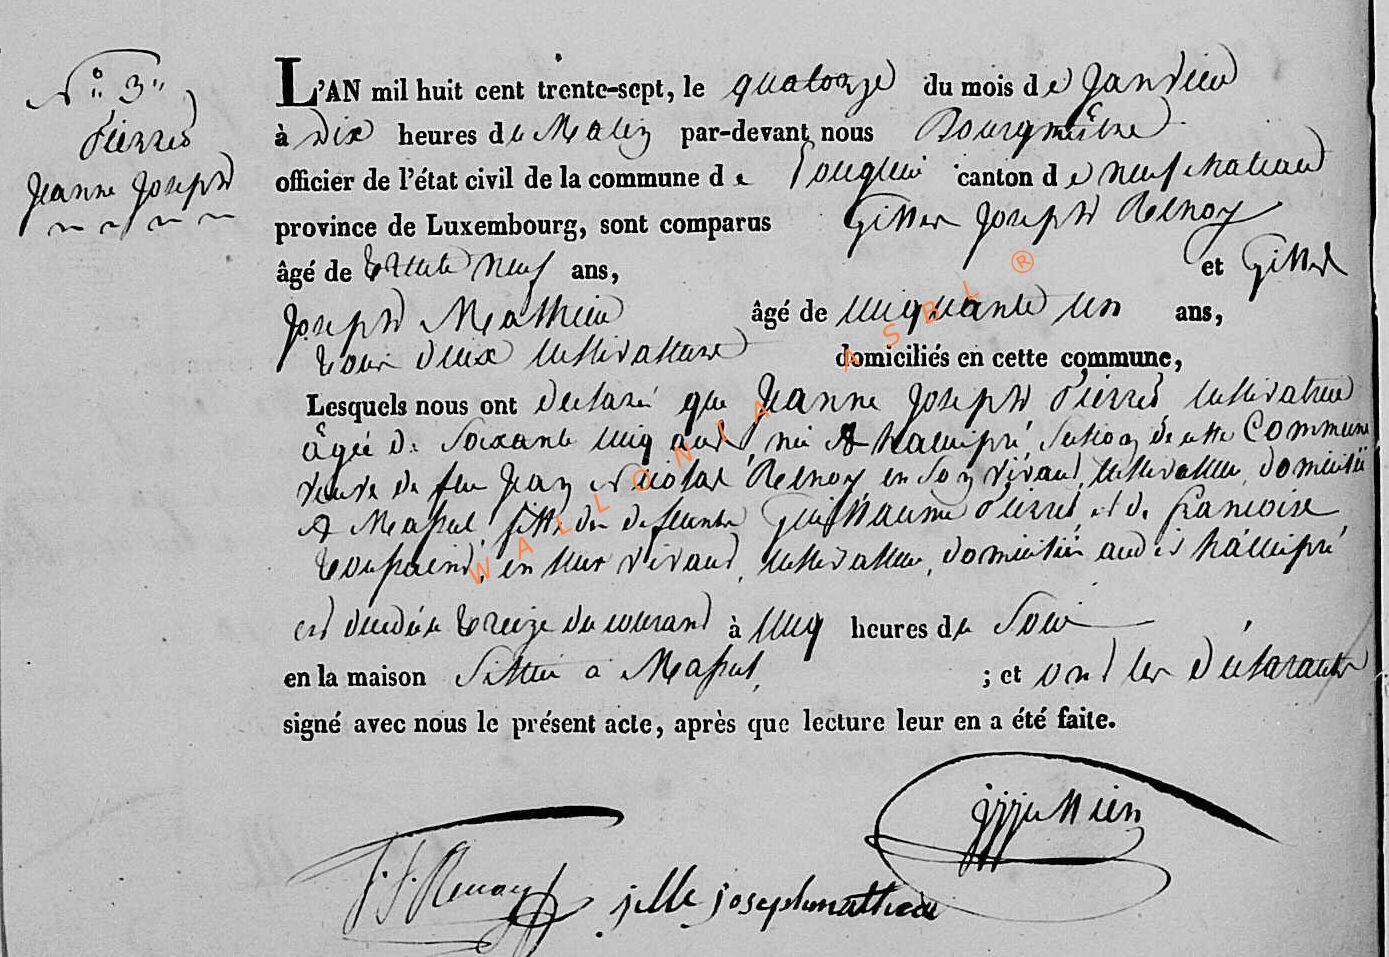 N° 3"
Pierret
Jeanne Joseph
L'AN mil huit cent trente-sept, le quatorze du mois de Janvier
à dix heures du Matin par-devant nous Bourgmêtre
officier de l'état civil de la commune de canton de neufchateau
province de Luxembourg, sont comparus Gilles Joseph Renoy
âgé de trente neuf ans, et Gilles
Joseph Mathieu âgé de cinquante un ans,
tous deux cultivateurs domiciliés en cette commune,
Lesquels nous ont declaré que Jeanne Joseph Pierret, cultivatrice
âgée de soixante cinq ans, née à hamipré, section de cette Commune
veuve de feu Jean Nicolas Renoy en son vivant, cultivateur, domicilié
à Massul, fille des defunts Guillaume Pierret et de francoise
en leur vivant, cultivateurs, domiciliés audit hamipré
est décédée treize du courant à cinq heures du Soir
en la maison Sittuée a Massul, ; et ont les déclarants
signé avec nous le présent acte, après que lecture leur en a été faite.
jjjullien
j. j. Renoy jille joseph mathieu
WALLONIA ASBL ®